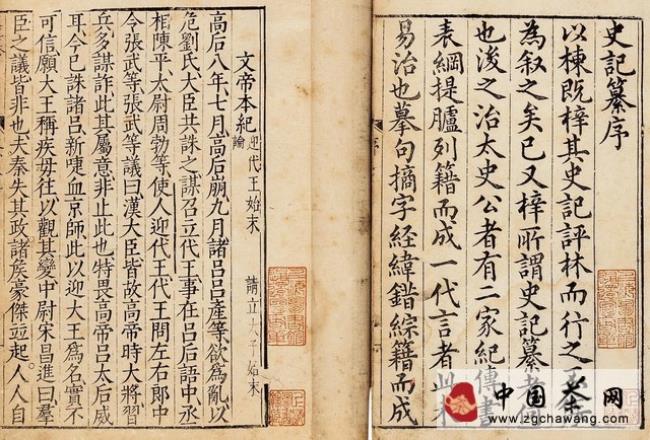 史記纂序
以棟既梓其史記評林而行之
為叙之矣已又梓所謂史記纂者
也浚之治太史公者有二家紀傳書
表綱提臚列籍而成一代言者此
易治也摹句摘字経緯錯綜籍而成
文帝本紀 迎代王始末 請立太子始末
論
高后八年、七月、高后崩、九月、諸呂呂產等、欲為亂、以
危劉氏、大臣共誅之、謀召立代王、事在呂后語中、丞
相陳平、太尉周勃等、使人迎代王、代王問左右郎中
令張武等、張武等議曰、漢大臣皆故高帝時大將、習
兵、多謀詐、此其屬意非止此也、特畏高帝呂太后威
耳、今已誅諸呂、新啑血京師、此以迎大王為名、實不
可信、願大王稱疾毋往、以觀其變、中尉宋昌進曰、羣
臣之議皆非也、夫秦失其政、諸侯豪傑竝起、人人自
中国茶网
www.zgchawang.com